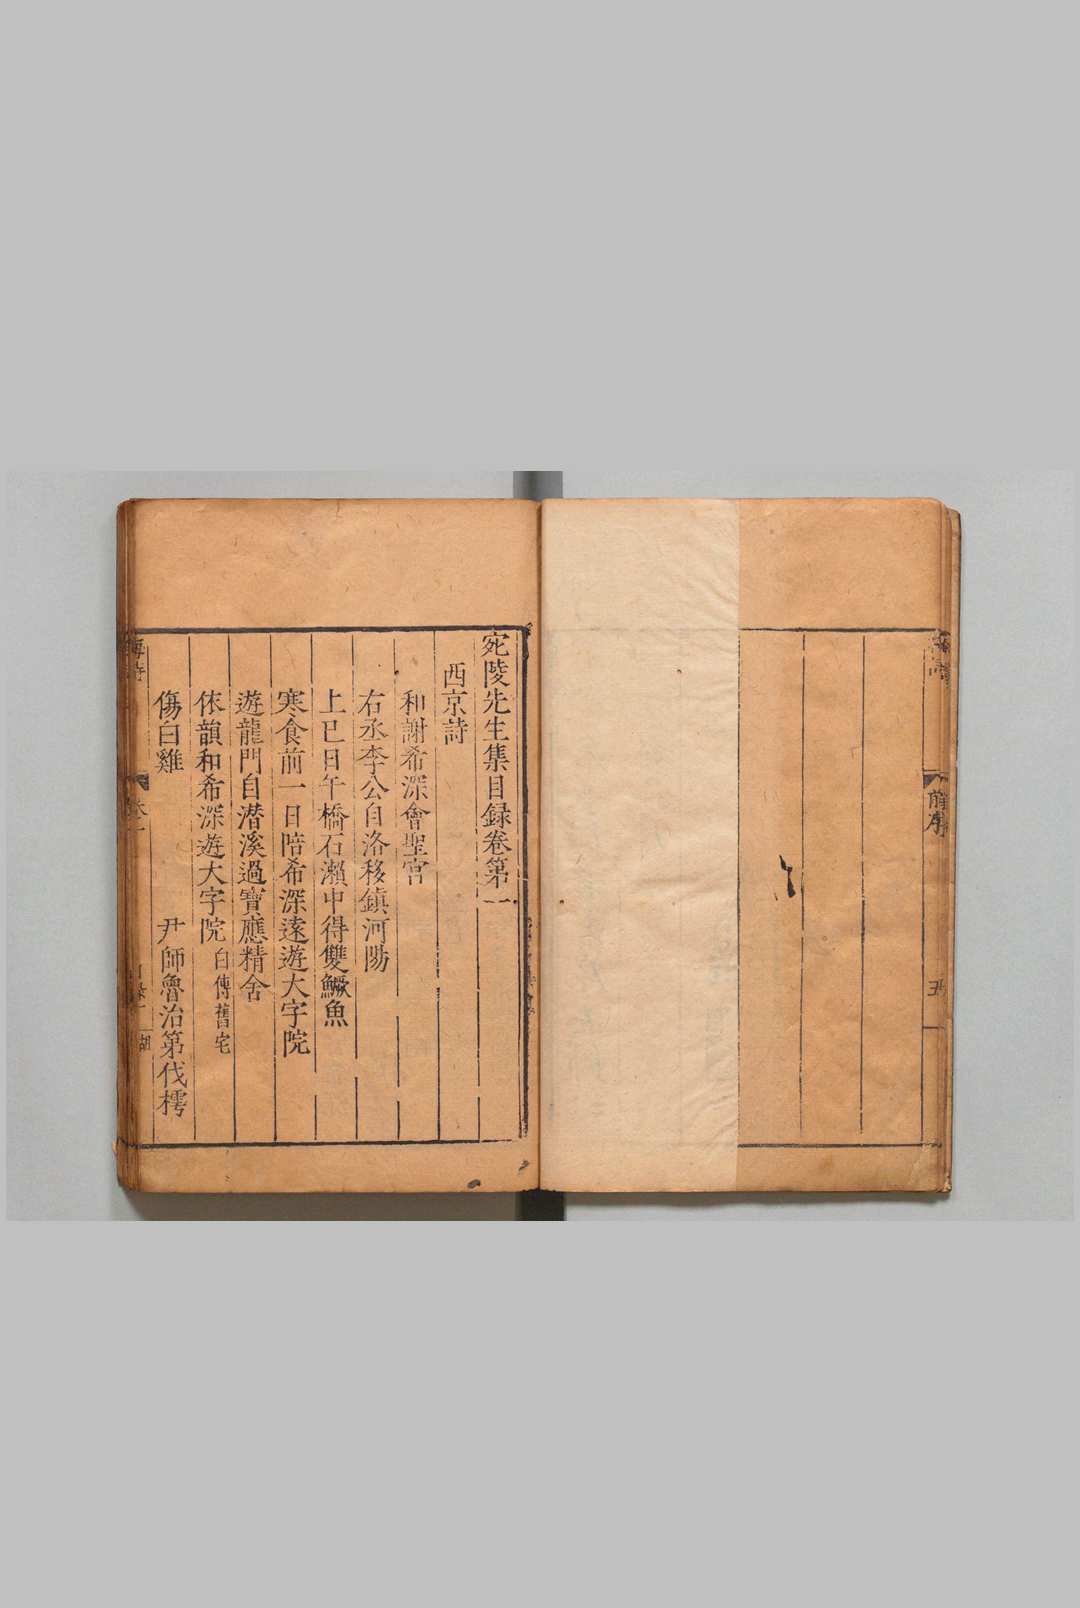 前序
五
宛陵先生集目録卷第一
西京詩
和謝希深會聖宮
右丞李公自洛移鎮河陽
上巳日午橋石瀨中得雙鱖魚
寒食前一日陪希深遠遊大字院
遊龍門自潜溪過寶應精舍
依韻和希深遊大字院 白傳舊宅
傷白雞 尹師魯治第伐樗